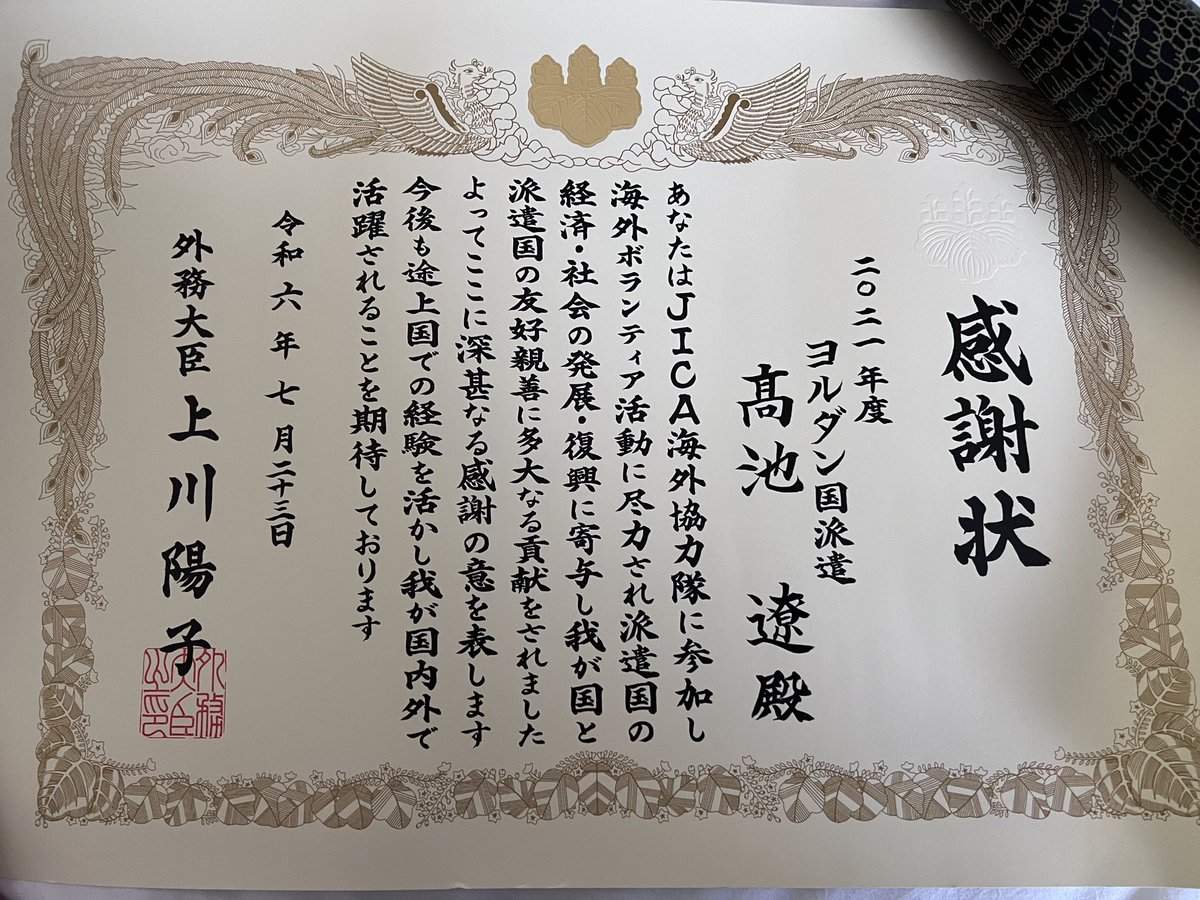 感謝状
二〇二一年度
ヨルダン国派遣
髙池 遼 殿
あなたはJICA海外協力隊に参加し
海外ボランティア活動に尽力され派遣国の
経済・社会の発展・復興に寄与し我が国と
派遣国の友好親善に多大なる貢献をされました
よってここに深甚なる感謝の意を表します
今後も途上国での経験を活かし我が国内外で
活躍されることを期待しております
令和六年七月二十三日
外務大臣 上川陽子
外務
大臣
之印